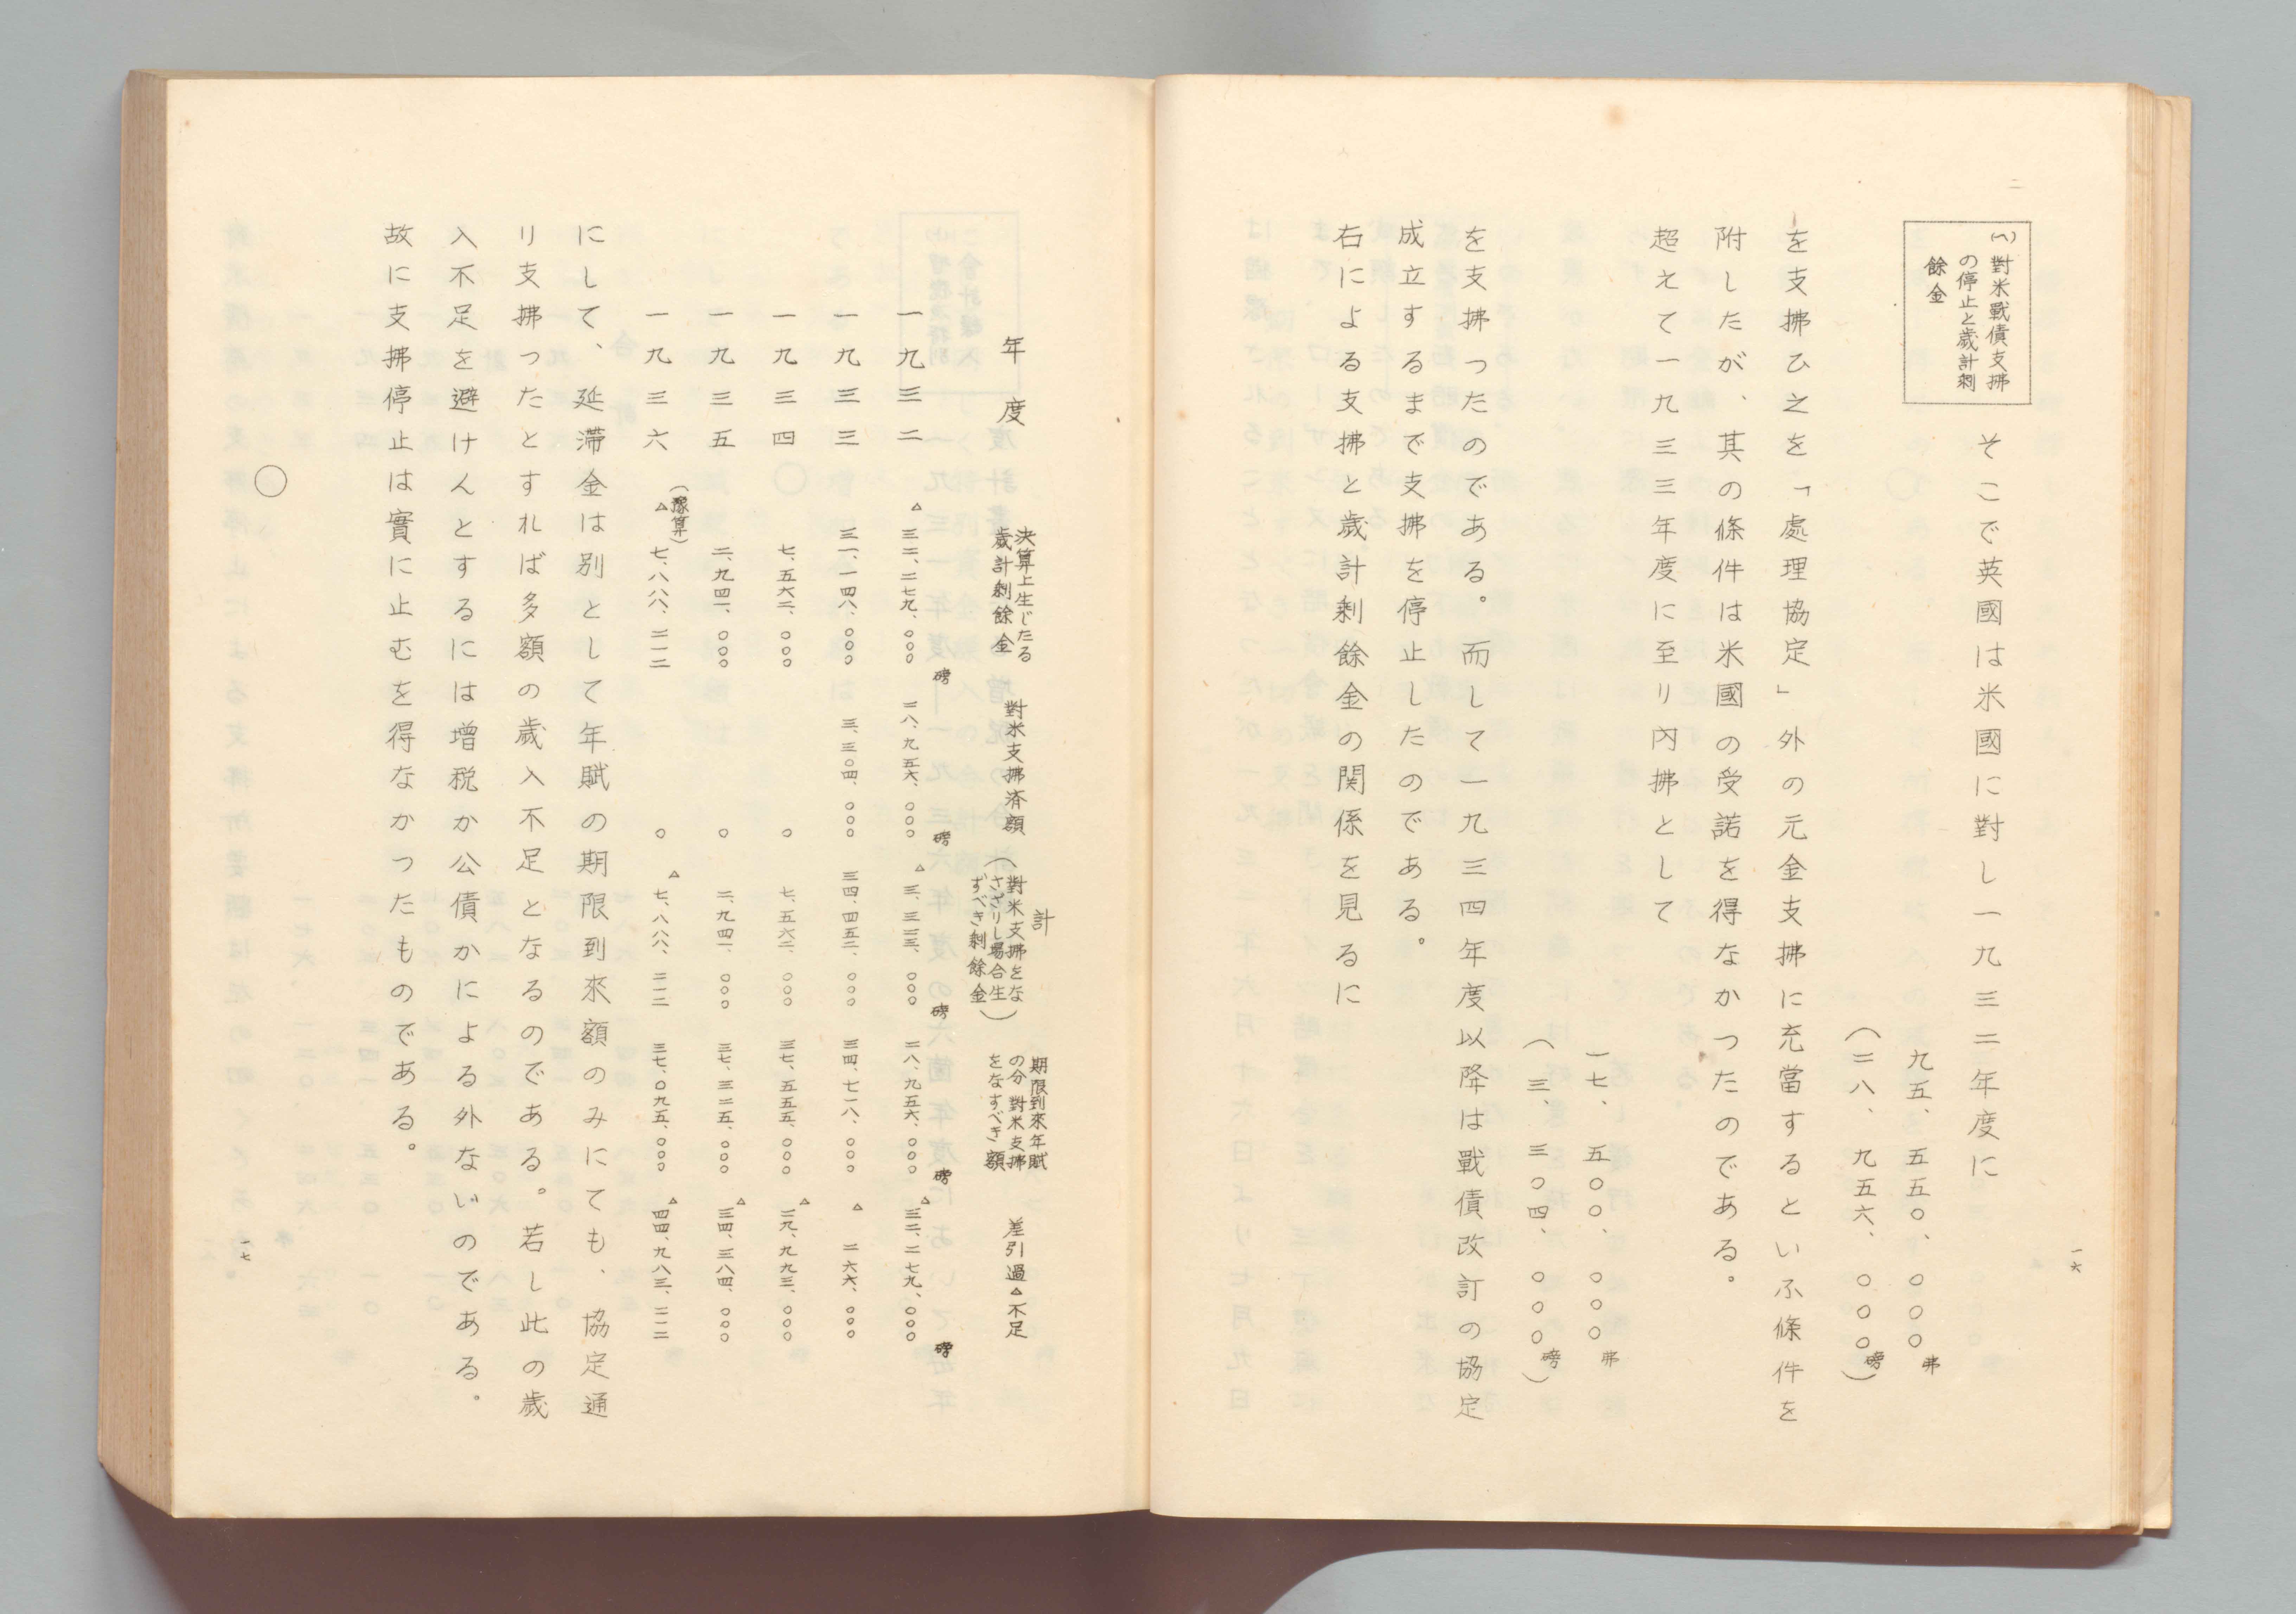 (ヘ)對米戰債支拂
の停止と歲計剩
餘金
そこで英國は米國に對し一九三二年度に
九五、五五〇、〇〇〇弗
(二八、九五六、〇〇〇磅)
を支拂ひ之を「處理協定」外の元金支拂に充當するといふ條件を
附したが、其の條件は米國の受諾を得なかつたのである。
超えて一九三三年度に至リ內拂として
一七、五〇〇、〇〇〇弗
(三、三〇四、〇〇〇磅)
を支拂つたのである。而して一九三四年度以降は戰債改訂の協定
成立するまで支拂を停止したのである。
右による支拂と歲計剩餘金の関係を見るに
一六
年度
決算上生じたる
歲計剩餘金
對米支拂済額
計
(對米支拂をな
さざりし場合生
ずべき剩餘金)
期限到來年賦
の分對米支拂
をなすべき額
差引過△不足
一九三二 △三二、二七九、〇〇〇磅 二八、九五六、〇〇〇磅 △三、三二三、〇〇〇磅 二八、九五六、〇〇〇磅 △三二、二七九、〇〇〇磅
一九三三 三一、一四八、〇〇〇 三、三〇四、〇〇〇 三四、四五二、〇〇〇 三四、七一八、〇〇〇 △二六六、〇〇〇
一九三四 七、五六二、〇〇〇 〇 七、五六二、〇〇〇 三七、五五五、〇〇〇 △二九、九九三、〇〇〇
一九三五 二、九四一、〇〇〇 〇 二、九四一、〇〇〇 三七、三二五、〇〇〇 △三四、三八四、〇〇〇
一九三六 (豫算)△七、八八八、二一二 〇 △七、八八八、二一二 三七、〇九五、〇〇〇 △四四、九八三、二一二
にして、延滯金は別として年賦の期限到來額のみにても、協定通
リ支拂つたとすれば多額の歲入不足となるのである。若し此の歲
入不足を避けんとするには增税か公債かによる外ないのである。
故に支拂停止は實に止むを得なかつたものである。
〇
一七